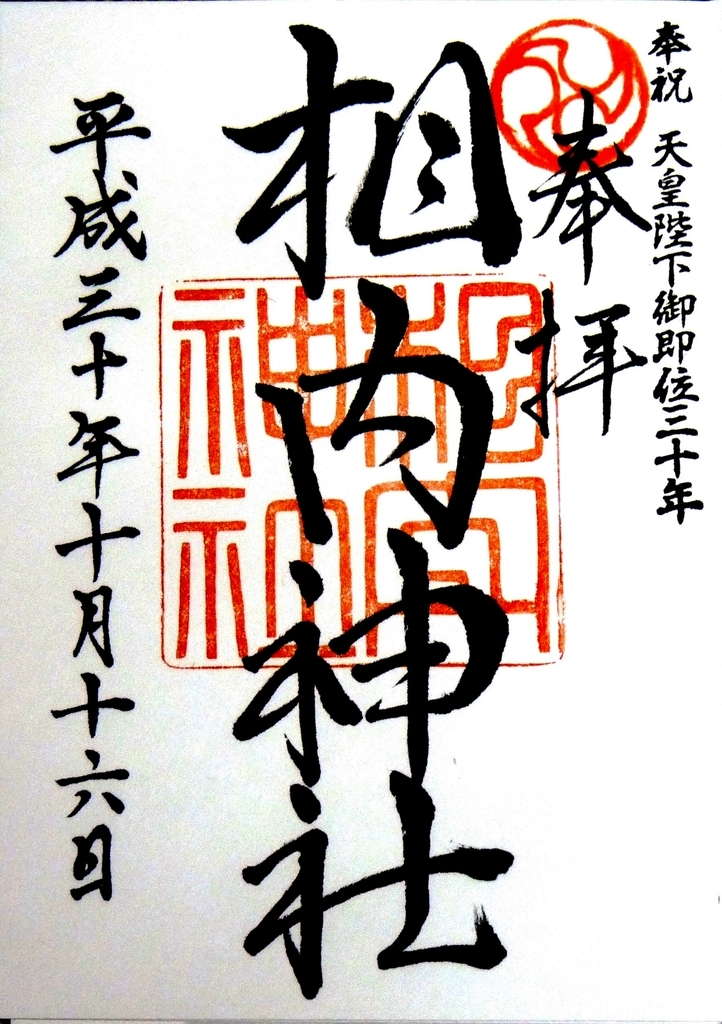 奉祝 天皇陛下御即位三十年
奉拝
相内神社
平成三十年十月十六日